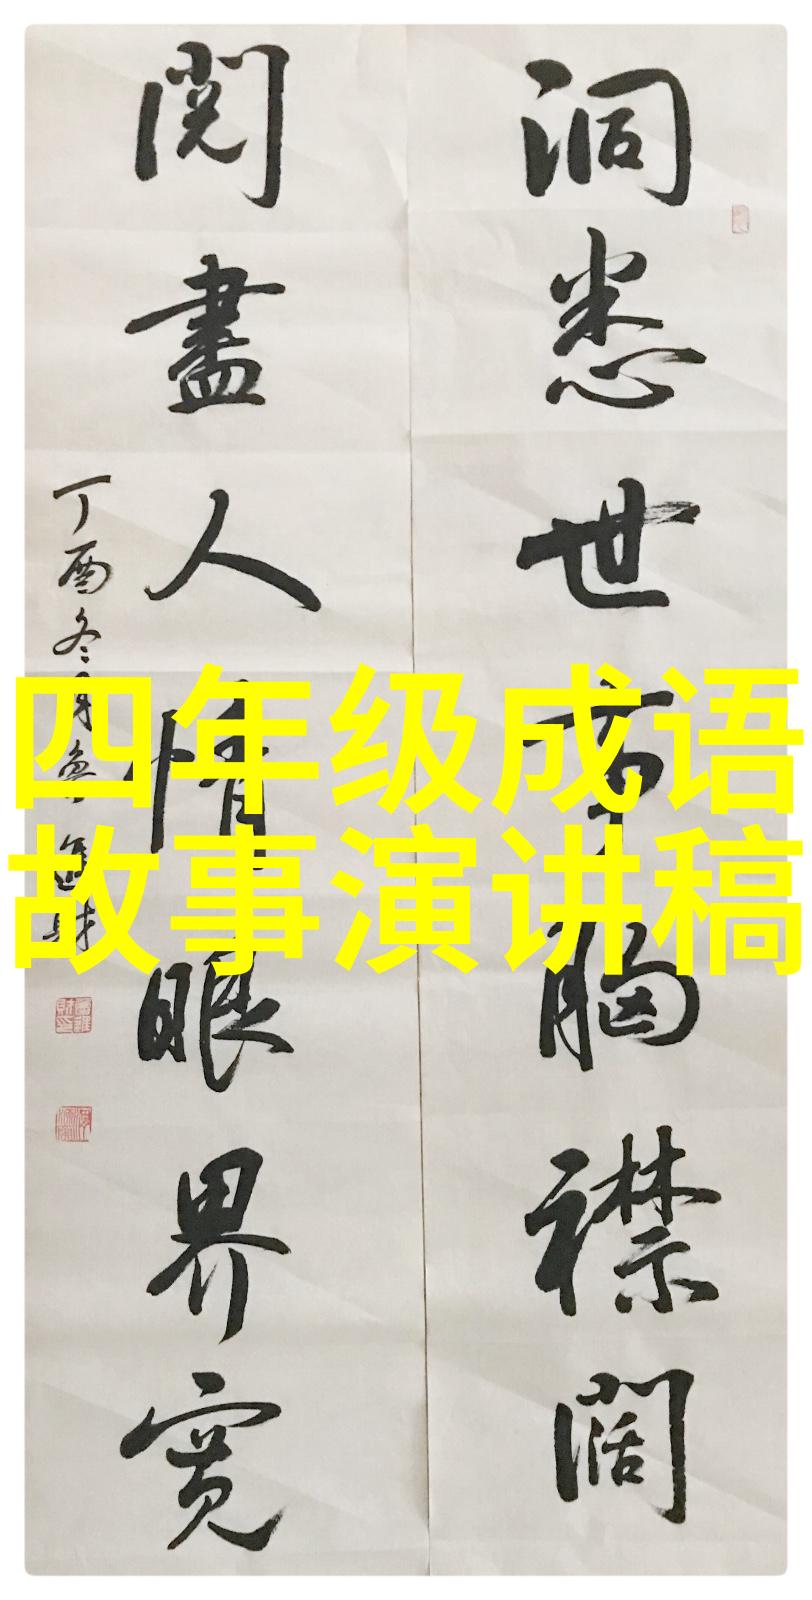 洞悉世事胸襟阔
閱盡人情眼界寬
丁酉冬月
四年级成语
故事演讲稿